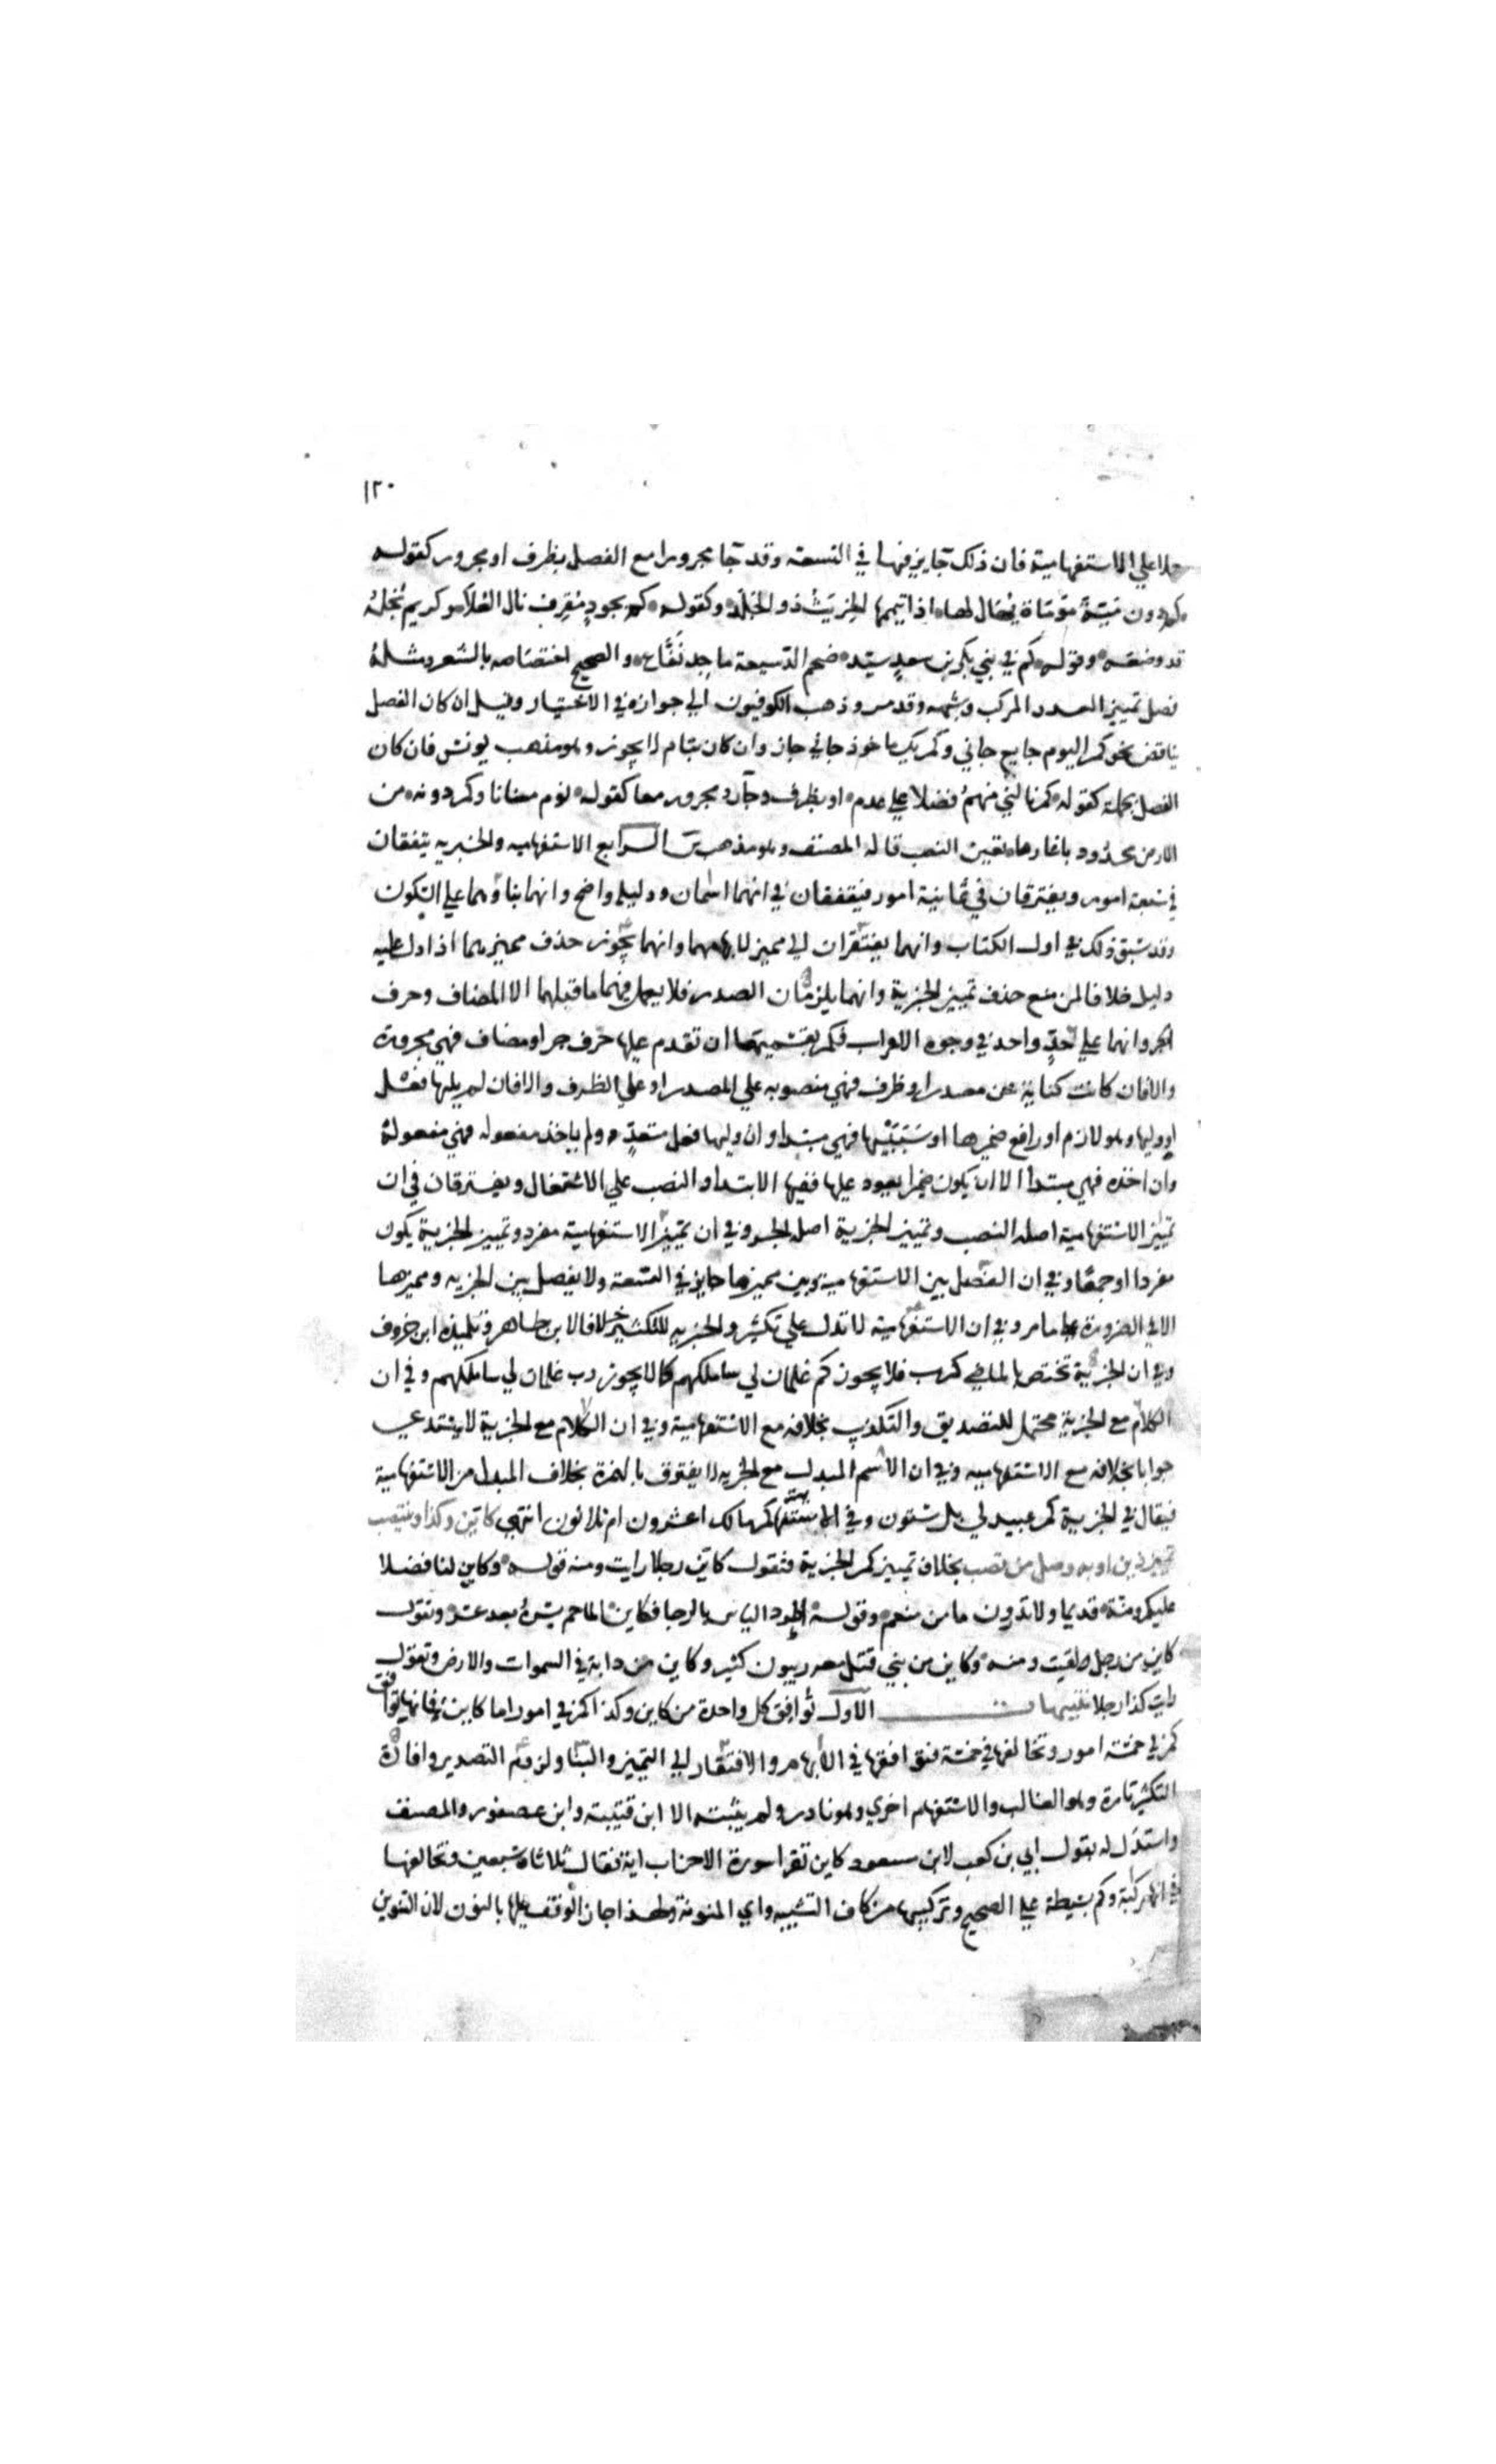 ١٢٠
حملا علي الاستفهامية فان ذلك جايز فيها في السعة وقد جا مجرورا مع الفصل بظرف او مجرور كقوله
كم دون مية موماة يهال لها اذا تيممها الخريت ذو الجلد وكقوله كم بجود مقرف نال العلا وكريم بخله
قد وضعه وقوله كم في بني بكر بن سعد سيد ضخم الدسيعة ماجد نفاع والصحيح اختصاصه بالشعر ومثله
فصل تمييز العدد المركب وشبهه وقد مر وذهب الكوفيون الي جوازه في الاختيار وقيل ان كان الفصل
بناقص نحو كم اليوم جايع جاني وكم بك ماخوذ جاني جاز وان كان بتام لا يجوز وهو مذهب يونس فان كان
الفصل بجملة كقوله كم نالني منهم فضلا علي عدم او بظرف وجار ومجرور معا كقوله تؤم سنانا وكم دونه من
الارض محدودبا غارها تعين النصب قاله المصنف وهو مذهب س الرابع الاستفهاميه والخبريه يتفقان
في سبعة امور ويفترقان في ثمانية امور فيتفقان في انهما اسمان ودليله واضح وانهما بناوهما علي السكون
وقد سبق ذلك في اول الكتاب وانهما يفتقران الي مميز لابهامهما وانهما يجوز حذف مميزهما اذا دل عليه
دليل خلافا لمن منع حذف تمييز الخبرية وانهما يلزمان الصدر فلا يعمل فيهما ما قبلهما الا المضاف وحرف
الجر وانهما علي حد واحد في وجوه الاعراب فكم بقسميها ان تقدم عليها حرف جر او مضاف فهي مجرورة
والا فان كانت كناية عن مصدر او ظرف فهي منصوبه علي المصدر او علي الظرف والا فان لم يليها فعل
او وليها وهو لازم او رافع ضميرها او سببيها فهي مبتدا وان وليها فعل متعد ولم ياخذ مفعوله فهي مفعولة
وان اخذه فهي مبتدا الا ان يكون ضميرا يعود عليها ففيها الابتدا والنصب علي الاشتغال ويفترقان في ان
تمييز الاستفهامية اصله النصب وتمييز الخبرية اصله الجر وفي ان تمييز الاستفهامية مفرد وتمييز الخبرية يكون
مفردا او جمعا وفي ان الفصل بين الاستفهامية وبين مميزها جايز في السعة ولا يفصل بين الخبريه ومميزها
الا في الضرورة علي ما مر وفي ان الاستفهامية لا تدل علي تكثير والخبريه للتكثير خلافا لابن طاهر وتلميذه ابن خروف
وفي ان الخبرية تختص بالماضي كرب فلا يجوز كم غلمان لي ساملكهم كما لا يجوز رب غلمان لي ساملكهم وفي ان
الكلام مع الخبرية محتمل للتصديق والتكذيب بخلافه مع الاستفهامية وفي ان الكلام مع الخبرية لا يستدعي
جوابا بخلافه مع الاستفهاميه وفي ان الاسم المبدل مع الخبريه لا يقترن بالهمزة بخلاف المبدل من الاستفهامية
فيقال في الخبرية كم عبيد لي بل ستون وفي الاستفهامية كم مالك اعشرون ام ثلاثون انتهي كاين وكذا وينتصب
تمييز ذين او به وصل من تصب بخلاف تمييز كم الخبرية فتقول كاين رجلا رايت ومنه قوله وكاين لنا فضلا
عليكم ومنة قديما ولا تدرون ما من منعم وقوله اطرد الياس بالرجا فكاين الما حم يسره بعد عسر وتقول
كاين من رجل لقيت ومنه وكاين من نبي قتل معه ربيون كثير وكاين من دابة في السموات والارض وتقول
رايت كذا رجلا تنبيهات الاول توافق كل واحدة من كاين وكذا كم في امور اما كاين فانها توافق
كم في خمسة امور وتخالفها في خمسة فتوافقها في الابهام والافتقار الي التمييز والبنا ولزوم التصدير وافادة
التكثير تارة وهو الغالب والاستفهام اخري وهو نادر ولم يثبته الا ابن قتيبة وابن عصفور والمصنف
واستدل له بقول ابي بن كعب لابن مسعود كاين تقرا سورة الاحزاب اية فقال ثلاثا وسبعين وتخالفها
في انها مركبة وكم بسيطة علي الصحيح وتركيبها من كاف التشبيه واي المنونة ولهذا جاز الوقف عليها بالنون لان التنوين